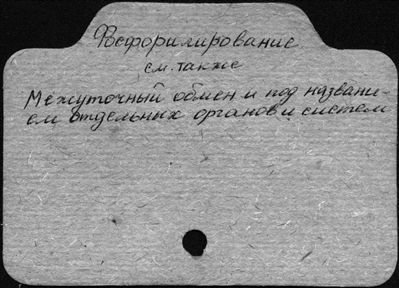 Фосфорилирование
см. также
Межуточный обмен и под названи-
ем отдельных органов и систем